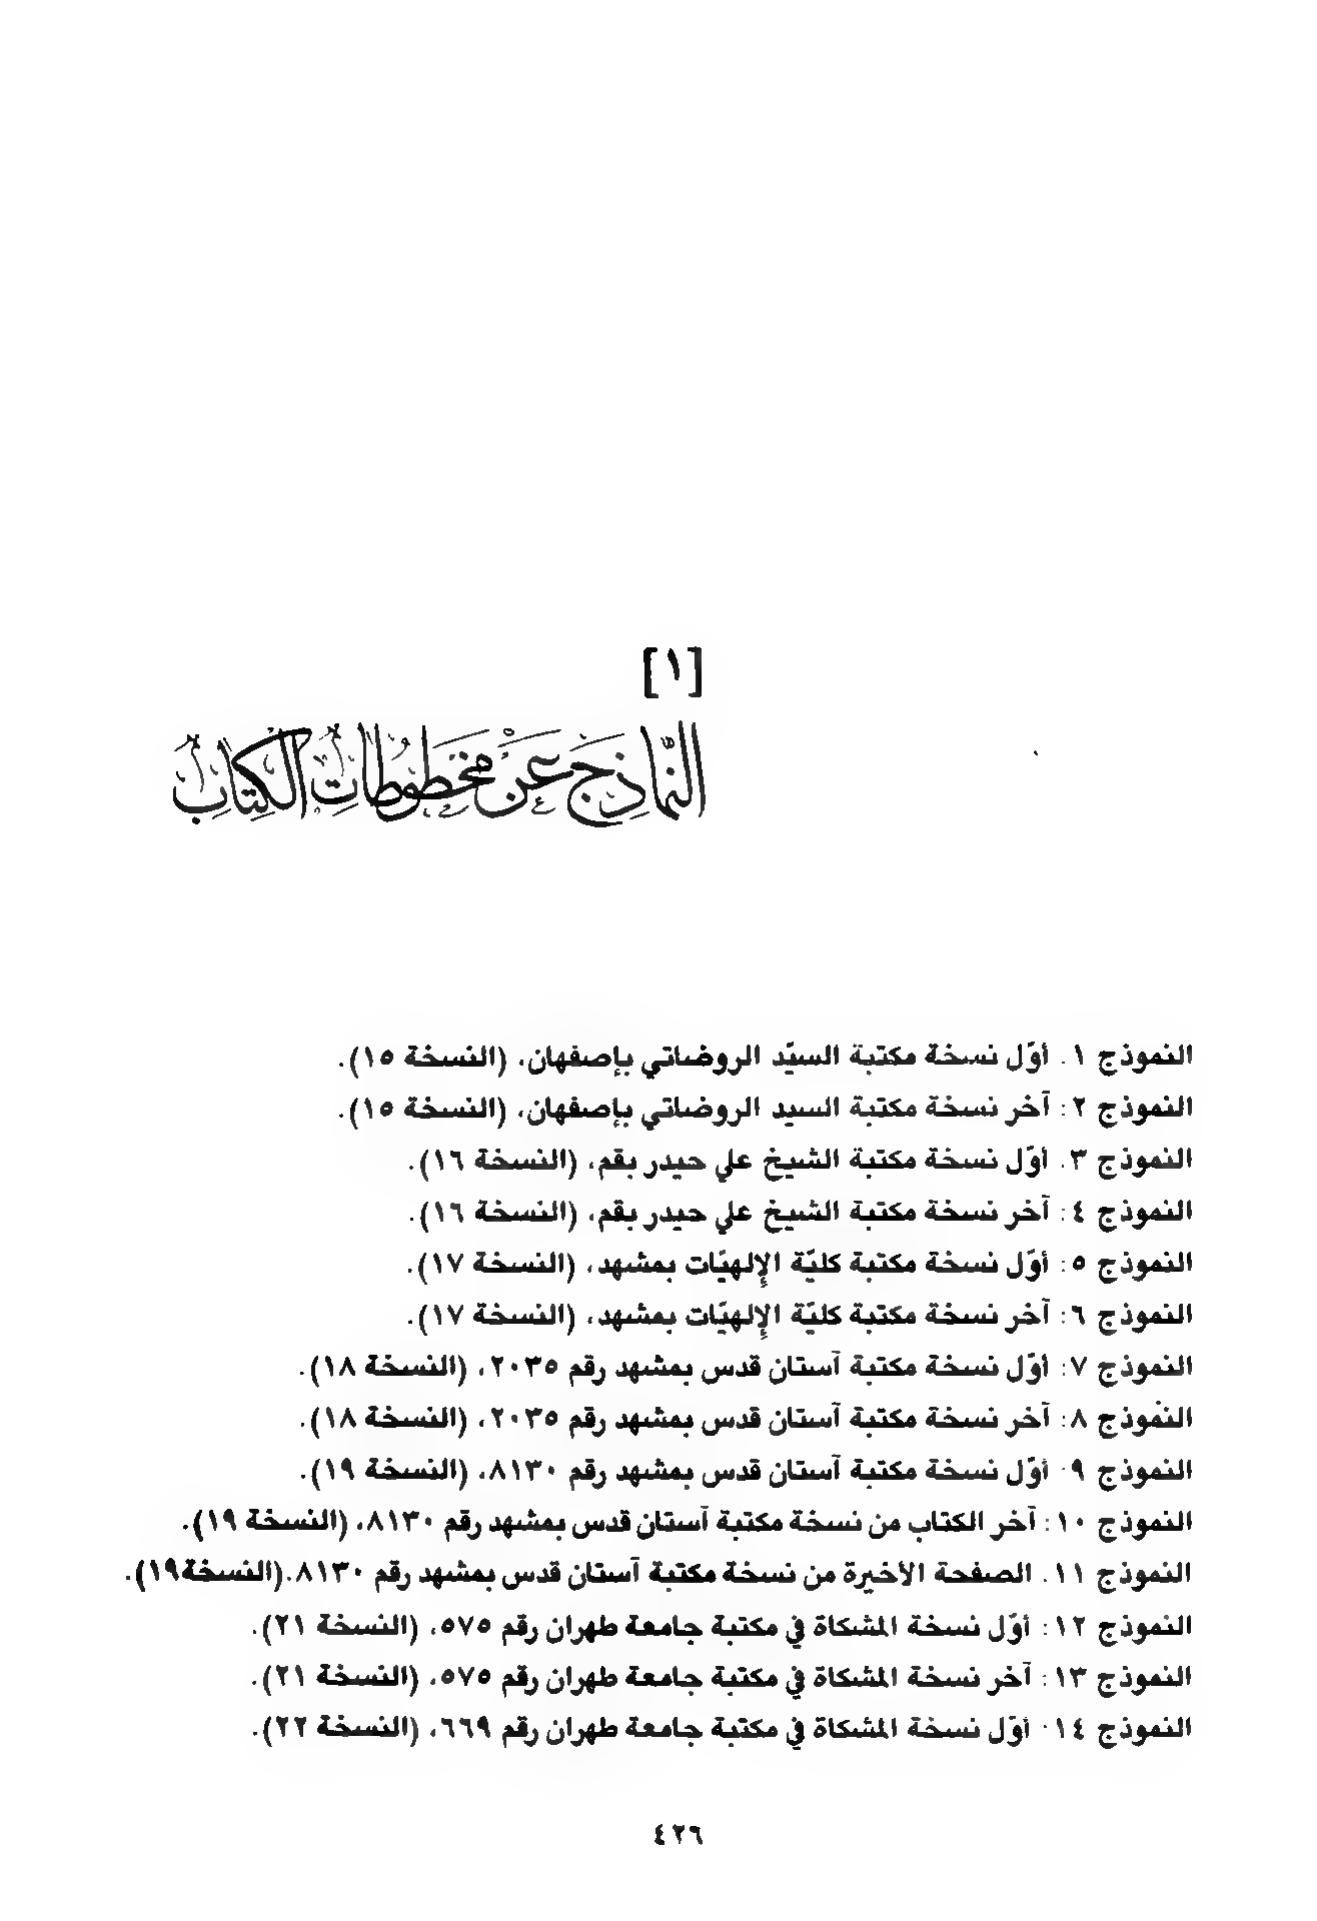 [١]
النَّماذِج عَنْ مَخطوطاتِ الكِتابِ
النموذج ١. أوّل نسخة مكتبة السيّد الروضاتي بإصفهان، (النسخة ١٥).
النموذج ٢: آخر نسخة مكتبة السيد الروضاتي بإصفهان، (النسخة ١٥).
النموذج ٣. أوّل نسخة مكتبة الشيخ علي حيدر بقم، (النسخة ١٦).
النموذج ٤: آخر نسخة مكتبة الشيخ علي حيدر بقم، (النسخة ١٦).
النموذج ٥: أوّل نسخة مكتبة كليّة الإلهيّات بمشهد، (النسخة ١٧).
النموذج ٦: آخر نسخة مكتبة كليّة الإلهيّات بمشهد، (النسخة ١٧).
النموذج ٧: أوّل نسخة مكتبة آستان قدس بمشهد رقم ٢٠٣٥، (النسخة ١٨).
النموذج ٨: آخر نسخة مكتبة آستان قدس بمشهد رقم ٢٠٣٥، (النسخة ١٨).
النموذج ٩: أوّل نسخة مكتبة آستان قدس بمشهد رقم ٨١٣٠، (النسخة ١٩).
النموذج ١٠: آخر الكتاب من نسخة مكتبة آستان قدس بمشهد رقم ٨١٣٠، (النسخة ١٩).
النموذج ١١. الصفحة الأخيرة من نسخة مكتبة آستان قدس بمشهد رقم ٨١٣٠.(النسخة١٩).
النموذج ١٢: أوّل نسخة المشكاة في مكتبة جامعة طهران رقم ٥٧٥، (النسخة ٢١).
النموذج ١٣: آخر نسخة المشكاة في مكتبة جامعة طهران رقم ٥٧٥، (النسخة ٢١).
النموذج ١٤: أوّل نسخة المشكاة في مكتبة جامعة طهران رقم ٦٦٩، (النسخة ٢٢).
٤٢٦